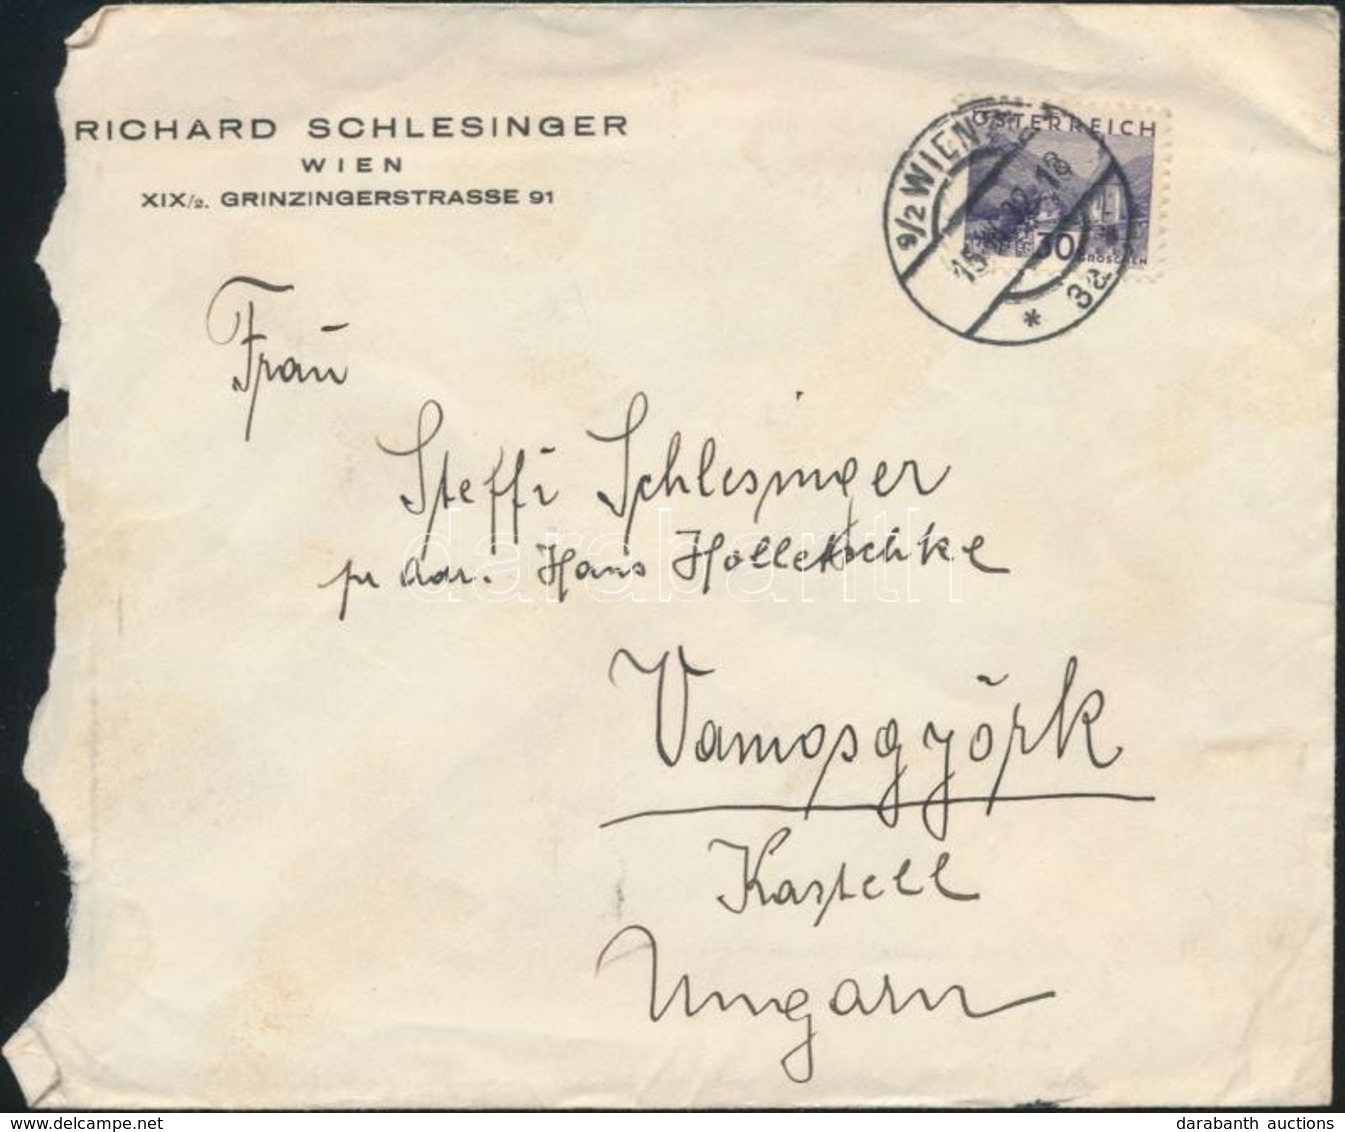 RICHARD SCHLESINGER
WIEN
XIX/2. GRINZINGERSTRASSE 91
ÖSTERREICH
30
GROSCHEN
9/2 WIEN
* 3a *
Frau
Steffi Schlesinger
pr Adr. Hans Holletschke
Vamosgyörk
Kastell
Ungarn
darabanth
darabanth auctions